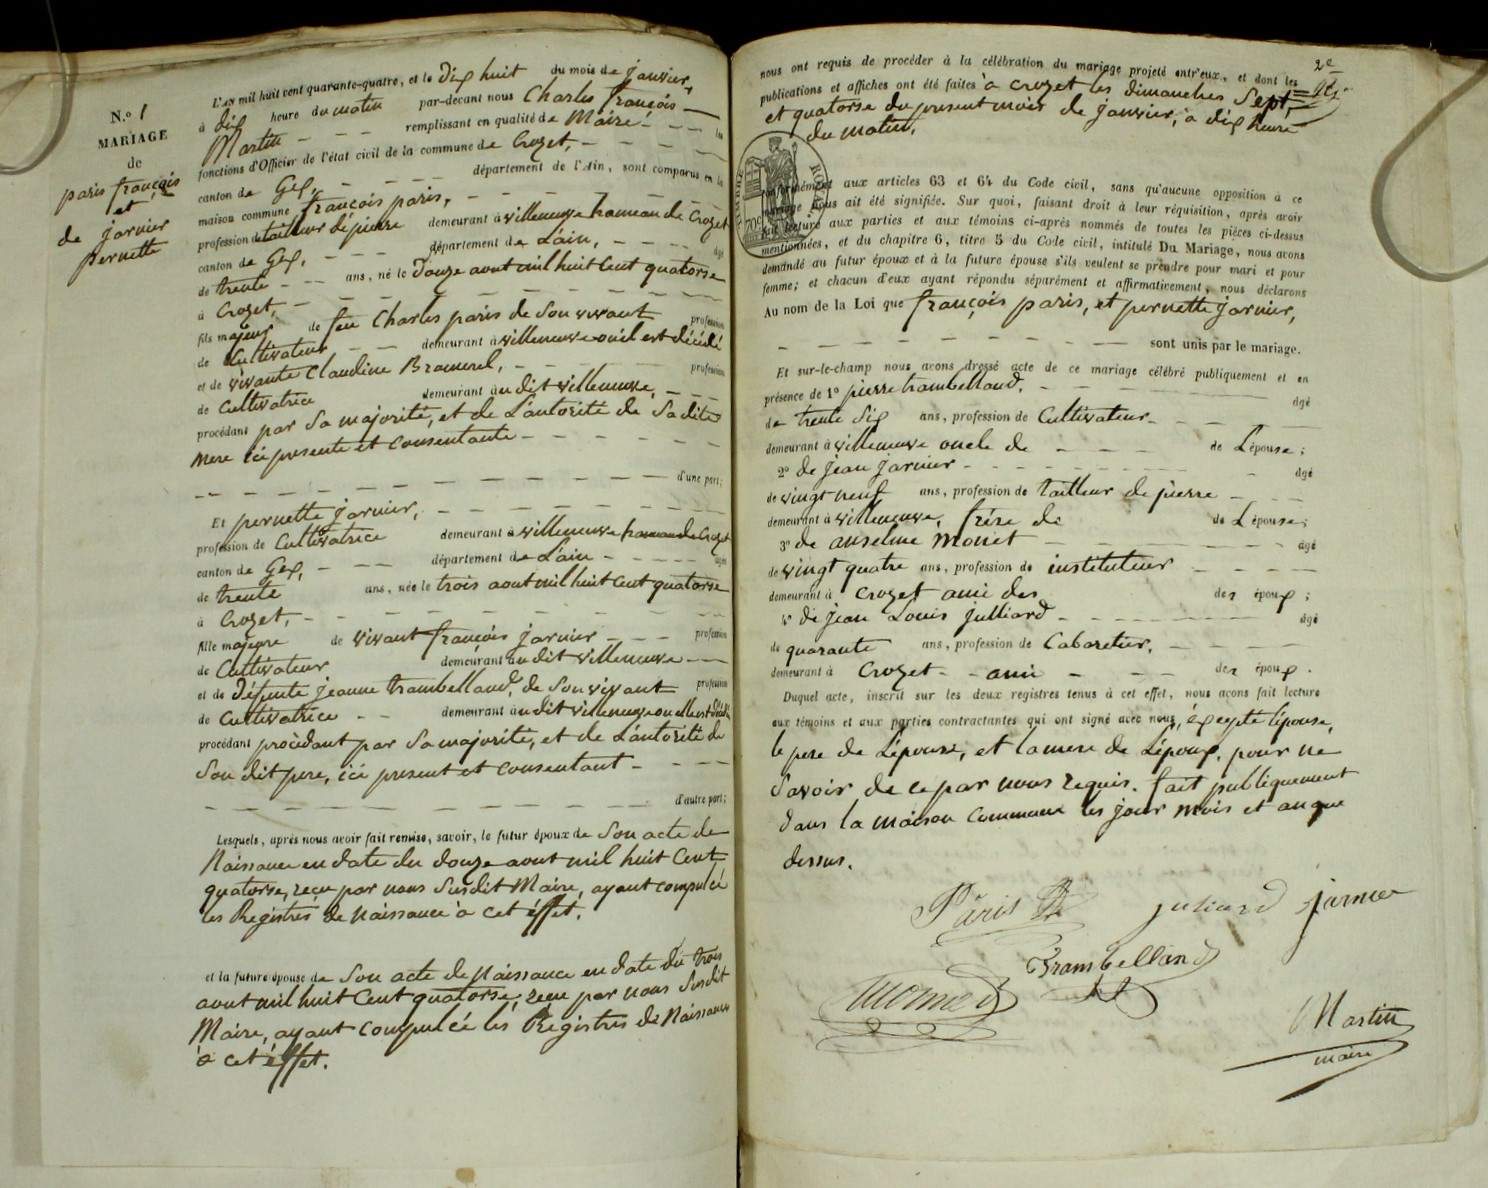 N.º 1
MARIAGE
de
paris françois
et
de jarnier
pernette
L'an mil huit cent quarante-quatre, et le dix huit du mois de janvier,
à dix heure du matin par-devant nous Charles françois
Martin remplissant en qualité de Maire les
fonctions d'Officier de l'état civil de la commune de Crozet,
canton de Gex, département de l'Ain, sont comparus en la
maison commune françois paris,
profession de tailleur de pierre demeurant à villeneuve hameau de Crozet
canton de Gex, département de L'ain, âgé
de trente ans, né le Douze aout mil huit Cent quatorse
à Crozet,
fils majeur de feu Charles paris de son vivant profession
de Cultivateur demeurant à villeneuve ou il est décédé
et de vivante Claudine Bramerel, profession
de Cultivatrice demeurant au dit villeneuve,
procédant par sa majorité, et de L'autorité de Sa dite
mere ici presente et consentante
d'une part;
Et pernette jarnier,
profession de Cultivatrice demeurant à villeneuve hameau de Crozet
canton de Gex, département de L'ain âgée
de trente ans, née le trois aout mil huit Cent quatorse
à Crozet,
fille majeure de vivant françois jarnier profession
de Cultivateur demeurant au dit villeneuve
et de défunte jeanne trambelland, de son vivant profession
de Cultivatrice demeurant au dit villeneuve ou elle est décédé
procédant procèdant par Sa majorité, et de L'autorité de
Son dit pere, ici present et consentant
d'autre part;
Lesquels, après nous avoir fait remise, savoir, le futur époux de Son acte de
Naissance en date du douze aout mil huit Cent
quatorse, reçu par nous Susdit Maire, ayant compulcé
les Registres de Naissance à cet éffet.
et la future épouse de Son acte de Naissance en date du trois
aout mil huit Cent quatorse, reçu par nous Susdit
Maire, ayant compulcé les Registres de Naissance
à cet éffet.
2e
nous ont requis de procéder à la célébration du mariage projeté entr'eux, et dont les
publications et affiches ont été faites à crozet les dimanches Sept,
et quatorse du present mois de janvier, à dix heure
du matin,
TIMBRE ROYAL
70c
conformément aux articles 63 et 64 du Code civil, sans qu'aucune opposition à ce
mariage nous ait été signifiée. Sur quoi, faisant droit à leur réquisition, après avoir
fait lecture aux parties et aux témoins ci-après nommés de toutes les pièces ci-dessus
mentionnées, et du chapitre 6, titre 5 du Code civil, intitulé Du Mariage, nous avons
demandé au futur époux et à la future épouse s'ils veulent se prendre pour mari et pour
femme; et chacun d'eux ayant répondu séparément et affirmativement, nous déclarons
Au nom de la Loi que françois paris, et pernette jarnier,
sont unis par le mariage.
Et sur-le-champ nous avons dressé acte de ce mariage célébré publiquement et en
présence de 1º pierre trambelland, âgé
de trente six ans, profession de Cultivateur
demeurant à villeneuve oncle de de L'épouse;
2º de jean jarnier âgé
de vingt neuf ans, profession de tailleur de pierre
demeurant à villeneuve, frére de de L'épouse;
3º de anselme monet âgé
de vingt quatre ans, profession de instituteur
demeurant à crozet ami des des époux;
4º de jean Louis julliard âgé
de quarante ans, profession de Cabaretier,
demeurant à Crozet ami des époux.
Duquel acte, inscrit sur les deux registres tenus à cet effet, nous avons fait lecture
aux témoins et aux parties contractantes qui ont signé avec nous, éxcepte l'épouse,
le pere de L'épouse, et la mere de L'époux, pour ne
Savoir de ce par nous requis. fait publiquement
dans la maison commune les jour mois et an que
dessus.
Pâris juliard jarnier
Trambelland
monnet
Martin
maire